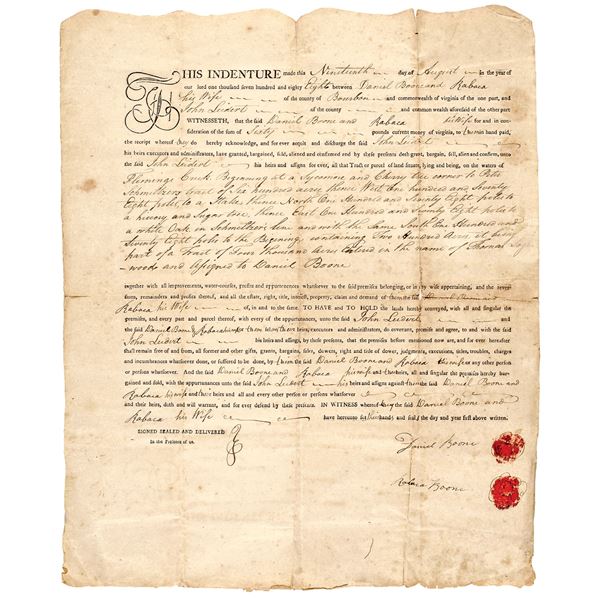 THIS INDENTURE made this Nineteenth day of August in the year of
our lord one thousand seven hundred and eighty Eight between Daniel Boone and Rabaca
his Wife of the county of Bourbon and commonwealth of virginia of the one part, and
John Leidert of the county and common wealth aforesaid of the other part
WITNESSETH, that the said Daniel Boone and Rabaca his Wife for and in
consideration of the sum of Sixty pounds current money of virginia, to them in hand paid,
the receipt whereof they do hereby acknowledge, and for ever acquit and discharge the said John Leidert
his heirs executors and administrators, have granted, bargained, sold, aliened and confirmed and by these presents doth grant, bargain, sell, alien and confirm, unto
the said John Leidert his heirs and assigns for ever, all that Tract or parcel of land situate, lying and being, on the waters of
Flemings Creek Beginning at a Sycomore and Cherry tree corner to Peter
Schmeltzers tract of six hundred acres thence West One hundred and Seventy
Eight poles, to a Stake, thence North One Hundred and Seventy Eight poles to
a hicory and Sugar tree, thence East One Hundred and Seventy Eight poles to
a White Oak in Schmeltzers line and with the Same South One Hundred and
Seventy Eight poles to the Begining, containing Two Hundred Acres, it being
part of a Tract of Four Thousand Acres entered in the name of Thomas
woods and assigned to Daniel Boone
together with all improvements, water-courses, profits and appurtenances whatsoever to the said premises belonging, or in any wise appertaining, and the reversions,
remainders and profits thereof, and all the estate, right, title, interest, property, claim and demand of them the said Daniel Boone and
Rabaca his Wife of, in and to the same. TO HAVE and TO HOLD the lands hereby conveyed, with all and singular the
premises, and every part and parcel thereof, with every of the appurtenances, unto the said John Leidert and
the said Daniel Boone & Rabaca his wife for them heirs, executors and administrators, do covenant, promise and agree, to and with the said
John Leidert his heirs and assigns, by these presents, that the premises before mentioned now are, and for ever hereafter
shall remain free of and from, all former and other gifts, grants, bargains, sales, dowers, right and title of dower, judgments, executions, titles, troubles, charges
and incumbrances whatsoever done, or suffered to be done, by them the said Daniel Boone and Rabaca his wife or any other person
or persons whatsoever. And the said Daniel Boone and Rabaca his wife and their heirs, all and singular the premises hereby bargained
and sold, with the appurtenances unto the said John Leidert his heirs and assigns against them the said Daniel Boone and
Rabaca his wife and their heirs and all and every other person or persons whatsoever
and their heirs, doth and will warrant, and for ever defend by these presents. IN WITNESS whereof the said Daniel Boone and
Rabaca his Wife have hereunto set hands and seals the day and year first above written.
SIGNED SEALED AND DELIVERED
In the Presence of us.
Daniel Boone
Rabaca Boone